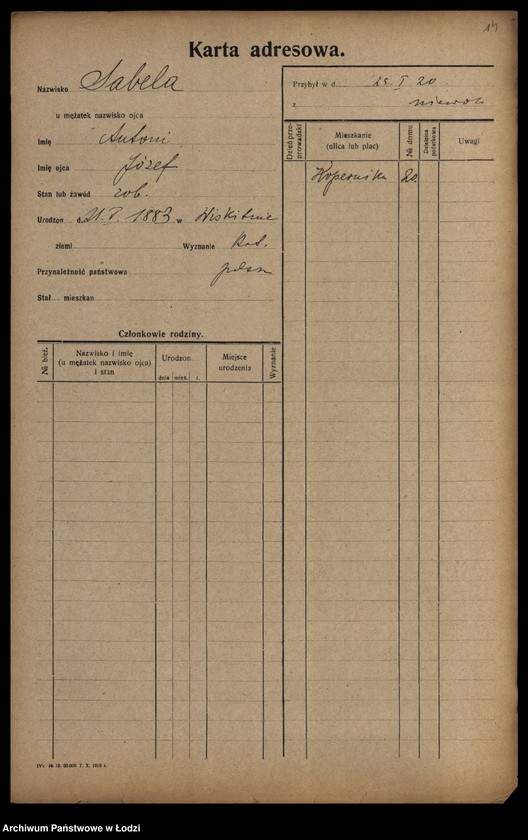 14
Karta adresowa.
Nazwisko Sabela
u mężatek nazwisko ojca
Imię Antoni
Imię ojca Józef
Stan lub zawód rob.
Urodzon d. 21.V. 1883 w Wiskitnie
ziemi Wyznanie kat.
Przynależność państwowa
Stał mieszkan
Członkowie rodziny.
№ bież.
Nazwisko i imię
(u mężatek nazwisko ojca)
i stan
Urodzon
dnia mies. r.
Miejsce
urodzenia
Wyznanie
Przybył w d. 25. I 20.
z niewoli
Dzień przeprowadzki
Mieszkanie
(ulica lub plac)
№ domu
Dzielnica
podatkowa
Uwagi
Kopernika 20.
Archiwum Państwowe w Łodzi